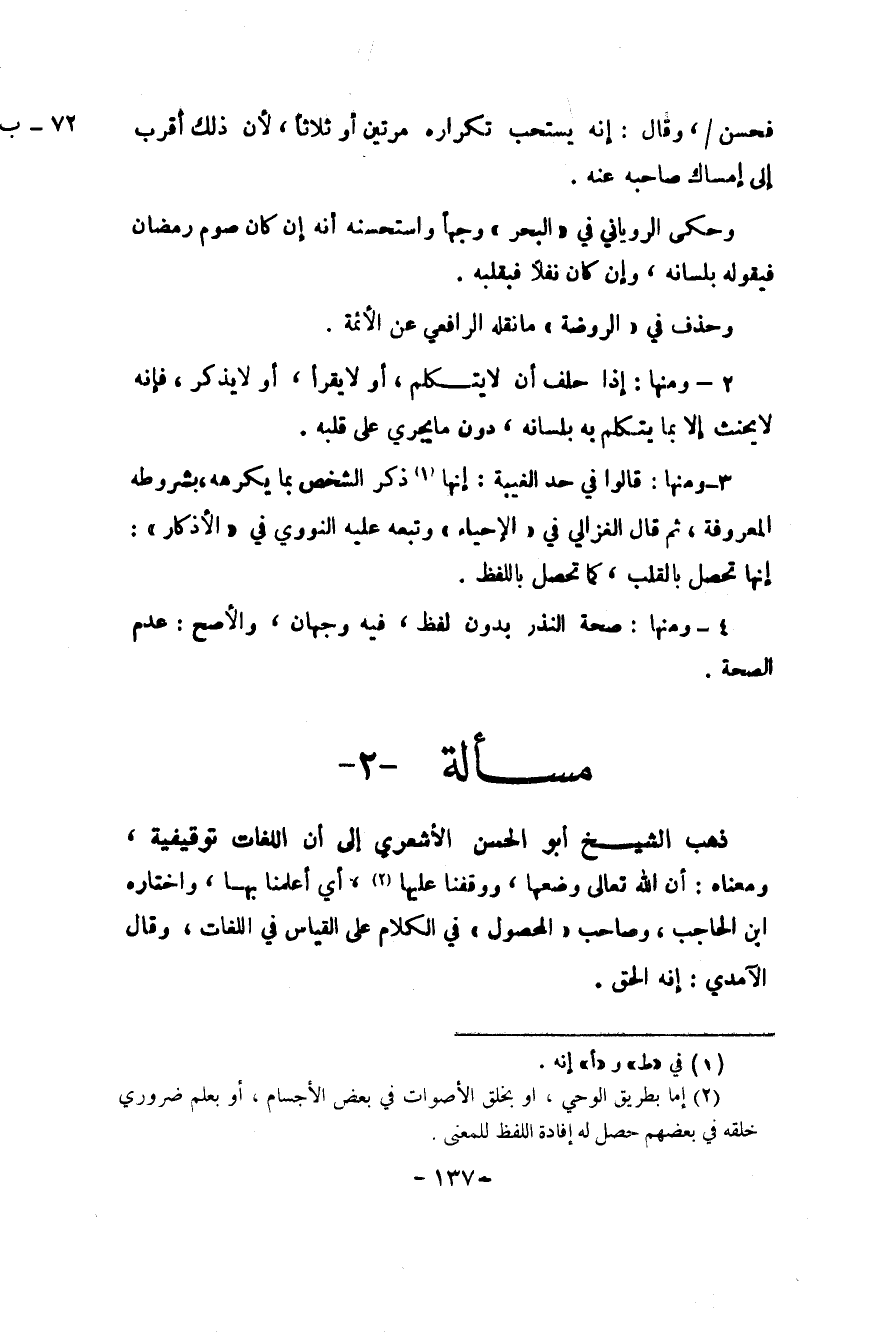 فحسن / ، وقال : إنه يستحب تكراره مرتين أو ثلاثاً ، لأن ذلك أقرب ٧٢ – ب
إلى إمساك صاحبه عنه .
وحكى الروياني في « البحر » وجهاً واستحسنه أنه إن كان صوم رمضان
فيقوله بلسانه ، وإن كان نفلاً فبقلبه .
وحذف في « الروضة » مانقله الرافعي عن الأئمة .
٢ – ومنها : إذا حلف أن لايتـــكلم ، أو لايقرأ ، أو لايذكر ، فإنه
لايحنث إلا بما يتكلم به بلسانه ، دون مايجري على قلبه .
٣–ومنها : قالوا في حد الغيبة : إنها (١) ذكر الشخص بما يكرهه،بشروطه
المعروفة ، ثم قال الغزالي في « الإحياء » وتبعه عليه النووي في « الأذكار » :
إنها تحصل بالقلب ، كما تحصل باللفظ .
٤ – ومنها : صحة النذر بدون لفظ ، فيه وجهان ، والأصح : عدم
الصحة .
مســـألة -٢-
ذهب الشيـــخ أبو الحسن الأشعري إلى أن اللغات توقيفية ،
ومعناه : أن الله تعالى وضعها ، ووقفنا عليها (٢) ، أي أعلمنا بهـا ، واختاره
ابن الحاجب ، وصاحب « المحصول » في الكلام على القياس في اللغات ، وقال
الآمدي : إنه الحق .
(١) في «ط» و «أ» إنه .
(٢) إما بطريق الوحي ، او بخلق الأصوات في بعض الأجسام ، أو بعلم ضروري
خلقه في بعضهم حصل له إفادة اللفظ للمعنى .
- ١٣٧ -